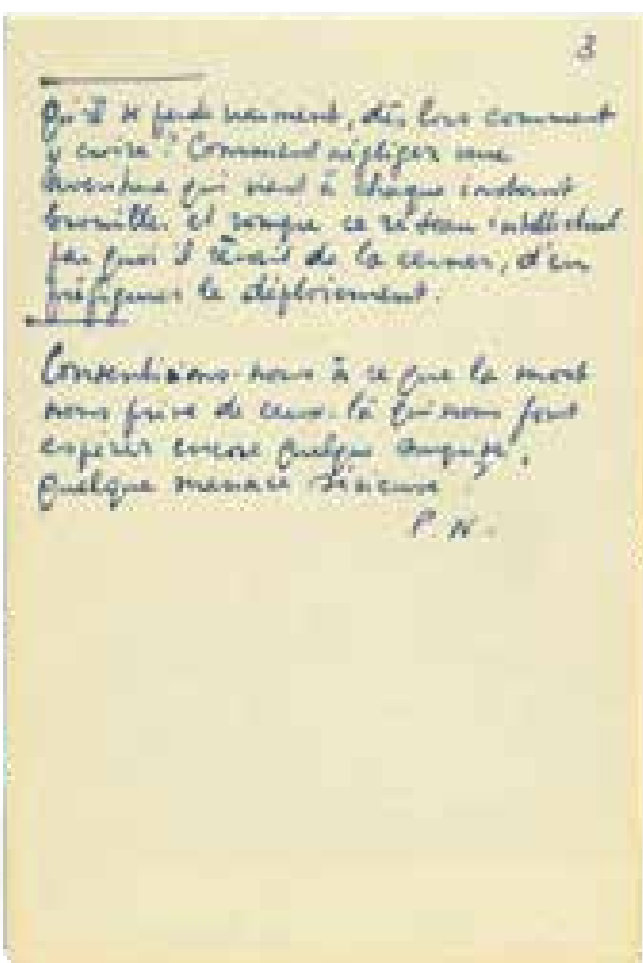 3
Qu'il se perde vraiment, dès lors comment
y croire ? Comment négliger une
aventure qui vient à chaque instant
brouiller et rompre ce réseau intellectuel
par quoi il rêvait de la cerner, d'en
préfigurer le déploiement.
Consentirions-nous à ce que la mort
nous prive de ceux-là qui nous font
espérer encore quelque
quelque menace sérieuse ?
P. N.